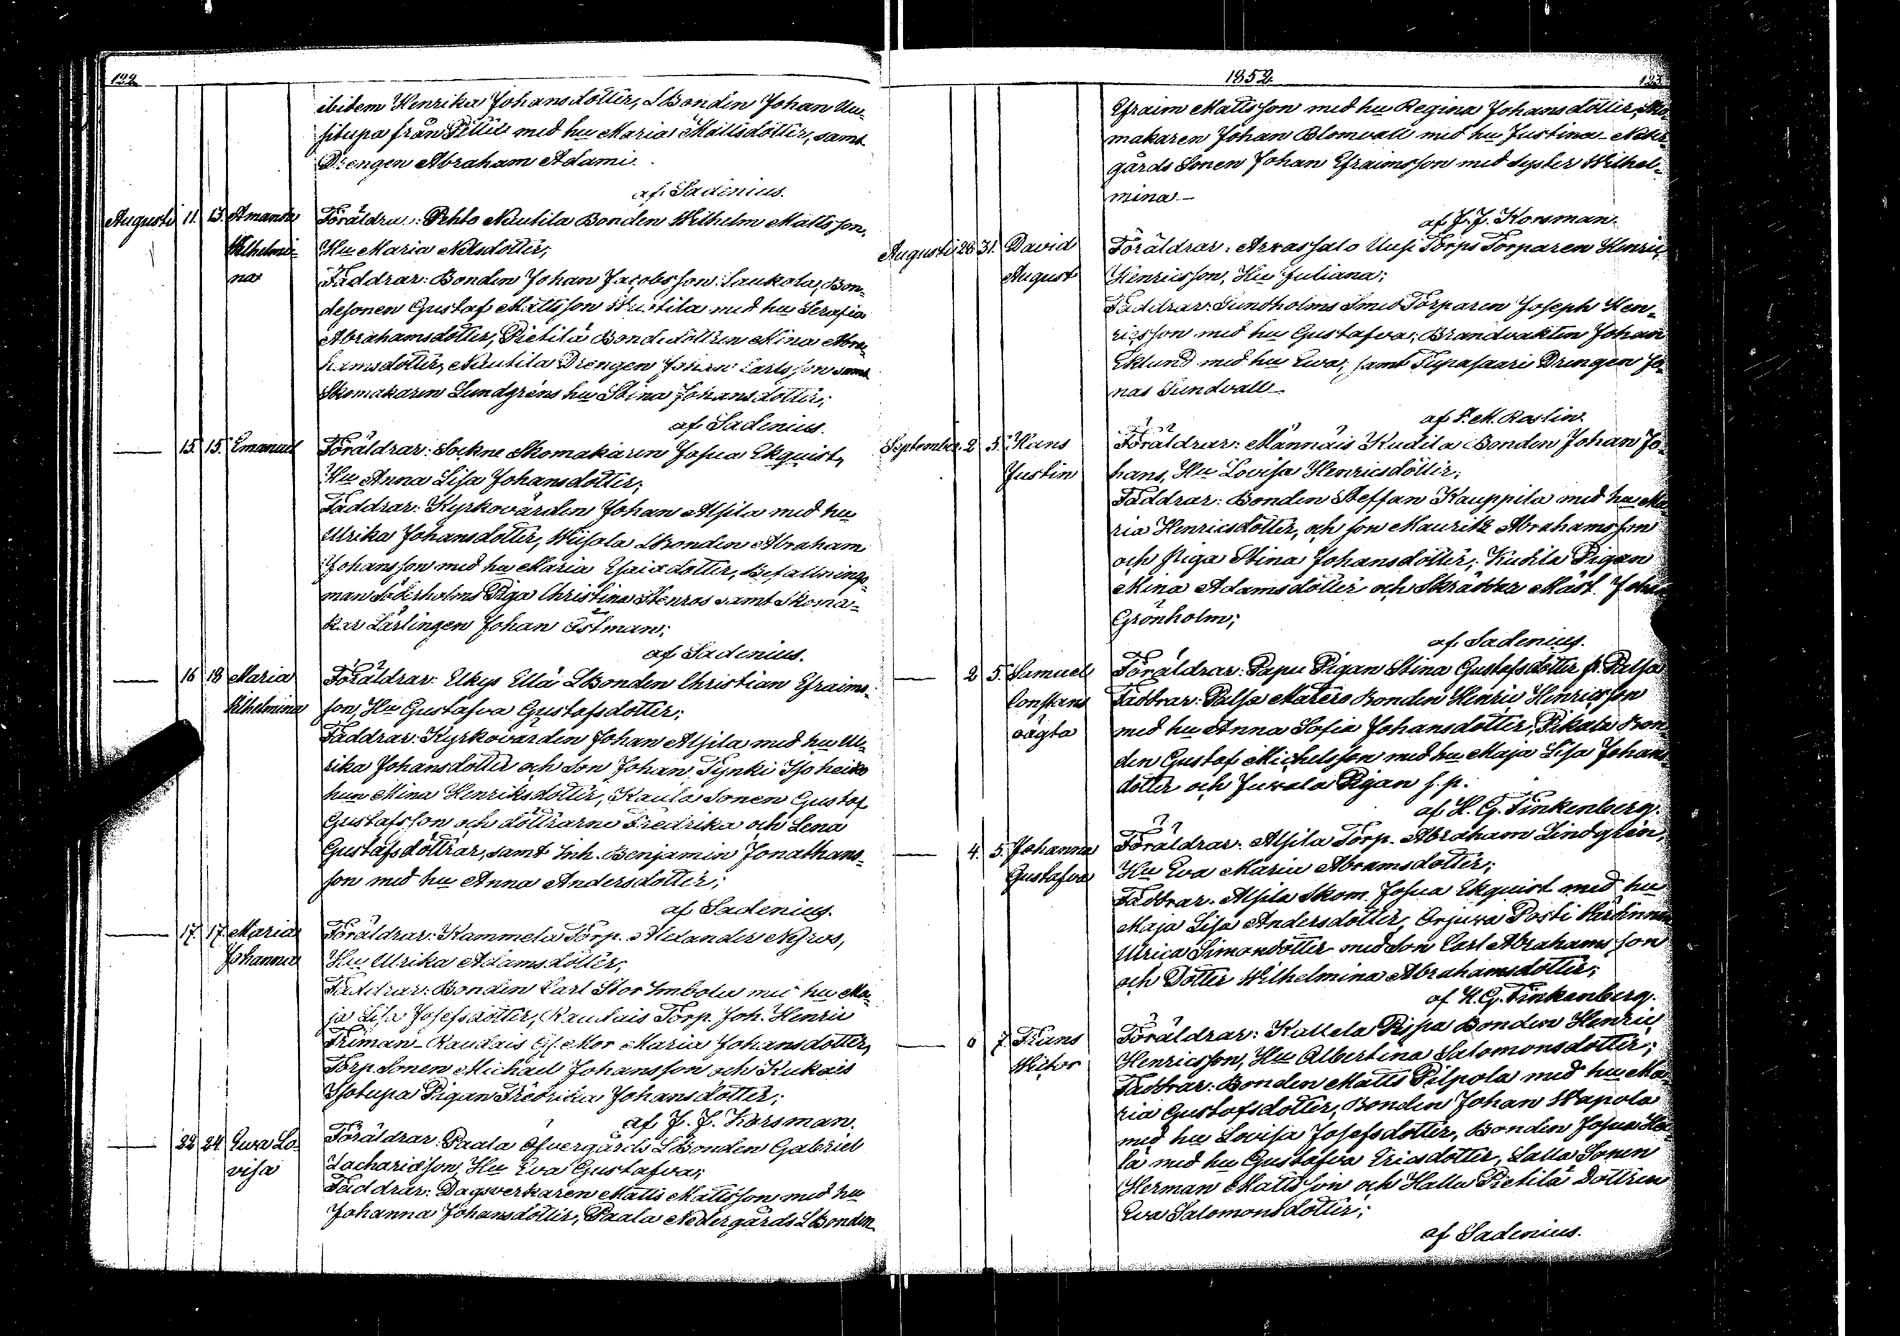 122
ibidem Henrika Johansdotter, LBonden Johan Uu-
situpa från med hu Maria Mattsdotter, samt
Drengen Abraham Adami.
af Sadenius.
Augusti 11. 13. Amanda Föräldrar: Pehto Nautila Bonden Wilhelm Mattsson,
Wilhelmi- Hu Maria Nilsdotter;
na Faddrar: Bonden Johan Jacobsson Laukola, Bon-
desonen Gustaf Mattsson med hu Serafia
Abrahamsdotter, Pietilä Bondedottren Mina Abra-
hamsdotter, Nautila Drengen Johan Carlsson samt
Skomakaren Lundgréns hu Stina Johansdotter;
af Sadenius.
15. 15. Emanuel Föräldrar: Sockne Skomakaren Josua Ekquist,
Hu Anna Lisa Johansdotter;
Faddrar: Kyrkovärden Johan Alsila med hu
Ulrika Johansdotter, LBonden Abraham
Johansson med hu Maria Esaiædotter, Befallnings-
man Söderholms Piga Christina Stenros samt Skoma-
kar Lärlingen Johan Östman;
af Sadenius.
16 18 Maria Föräldrar: Ukys Ellä LBonden Christian Efraims-
Wilhelmina son, Hu Gustafva Gustafsdotter;
Faddrar: Kyrkovärden Johan Alsila med hu Ul-
rika Johansdotter och Son Johan, Tynki
hun Mina Henriksdotter, Kaula Sonen Gustaf
Gustafsson och döttrarne Fredrika och Lena
Gustafsdöttrar, samt Inh. Benjamin Jonathans-
son med hu Anna Andersdotter;
af Sadenius.
17. 17. Maria Föräldrar: Kammela Torp. Alexander Nyroos,
Johanna Hu Ulrika Adamsdotter;
Faddrar: Bonden Carl Stor Imbola med hu Ma-
ja Lisa Josefsdotter, Raudais Torp. Joh. Henric
Friman, Raudais Maria Johansdotter,
Torp. Sonen Michael Johansson och Kukais
Isotupa Pigan Fredrika Johansdotter;
af J. J. Korsman.
22 24. Ewa Lo- Föräldrar: Paala Öfvergårds LBonden Gabriel
visa Zachariæson, Hu Eva Gustafva;
Faddrar: Dagsverkaren Matts Mattsson med hu
Johanna Johansdotter, Paala Nedergårds LBonden
1852
123
Efraim Mattsson med hu Regina Johansdotter, Sko-
makaren Johan Blomvall med hu Justina Neder-
gårds Sonen Johan Efraimsson med syster Wilhel-
mina
af J. J. Korsman.
Augusti 28 31. David Föräldrar: Arvassalo Uusi Torps Torparen Henric
August Henricsson, Hu Juliana;
Faddrar: Sundholms Smed Torparen Joseph Hen-
ricsson med hu Gustafva, Brandvakten Johan
Eklund med hu Ewa, samt Drengen Jo-
nas Sundvall
af F. M. Rostin.
September 2 5. Hans Föräldrar: Männäis Kudila Bonden Johan Jo-
Justin hans, Hu Lovisa Henricsdotter;
Faddrar: Bonden Steffan Kauppila med hu Ma-
ria Henricsdotter, och son Mauritz Abrahamsson
och Piga Stina Johansdotter, Kudila Pigan
Mina Adamsdotter och Skräddar Mäst. Johan
Grönholm;
af Sadenius.
2 5. Samuel Föräldrar: Papu Pigan Stina Gustafsdotter fr. Palsa
Constans Faddrar: Palsa Matèro Bonden Henric Henricsson
oägta med hu Anna Sofia Johansdotter, Pikala Bon-
den Gustaf Michelsson med hu Maja Lisa Johans-
dotter och Juvala Pigan s. p.
af K. G. Finkenberg.
4. 5. Johanna Föräldrar: Alsila Torp. Abraham Lindgrén,
Gustafva Hu Eva Maria Abramsdotter;
Faddrar: Alsila Skom. Josua Ekquist med hu
Maja Lisa Andersdotter, Posti Värdinnan
Ulrica Simonsdotter med Son Carl Abrahamsson
och Dotter Wilhelmina Abrahamsdotter;
af K. G. Finkenberg.
6 7. Frans Föräldrar: Kallela Pispa Bonden Henric
Wictor Henricsson, Hu Albertina Salomonsdotter;
Faddrar: Bonden Matts Pilpola med hu Ma-
ria Gustafsdotter, Bonden Johan Wapola
med hu Lovisa Josefsdotter, Bonden Josua
lä med hu Gustafva Ericsdotter, Lalla Sonen
Herman Mattsson och Halla Pietilä Dottren
Eva Salomonsdotter;
af Sadenius.